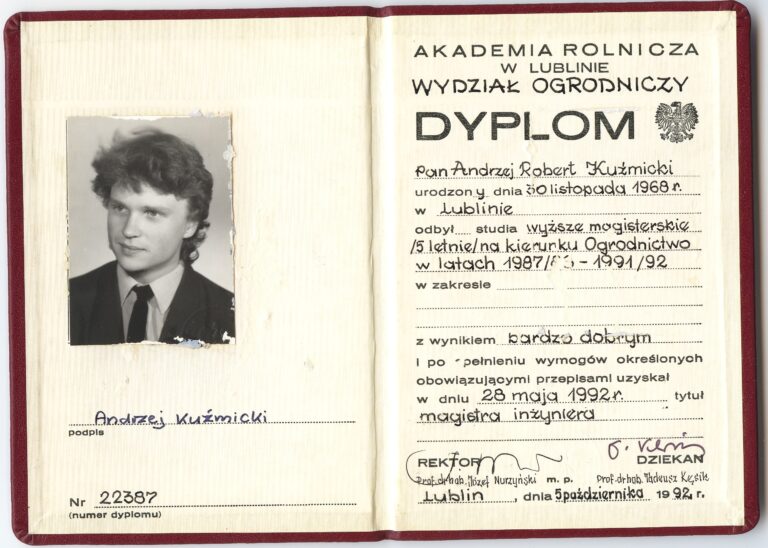 Andrzej Kuźmicki
podpis
Nr 22387
(numer dyplomu)
AKADEMIA ROLNICZA
W LUBLINIE
WYDZIAŁ OGRODNICZY
DYPLOM
Pan Andrzej Robert Kuźmicki
urodzony dnia 30 listopada 1968 r.
w Lublinie
odbył studia wyższe magisterskie
/5 letnie/na kierunku Ogrodnictwo
w latach 1987/ - 1991/92
w zakresie
z wynikiem bardzo dobrym
i po spełnieniu wymogów określonych
obowiązującymi przepisami uzyskał
w dniu 28 maja 1992 r. tytuł
magistra inżyniera
REKTOR DZIEKAN
Prof. dr hab. Józef Nurzyński m. p. Prof. dr hab. Tadeusz
Lublin, dnia 5 października 1992, r.